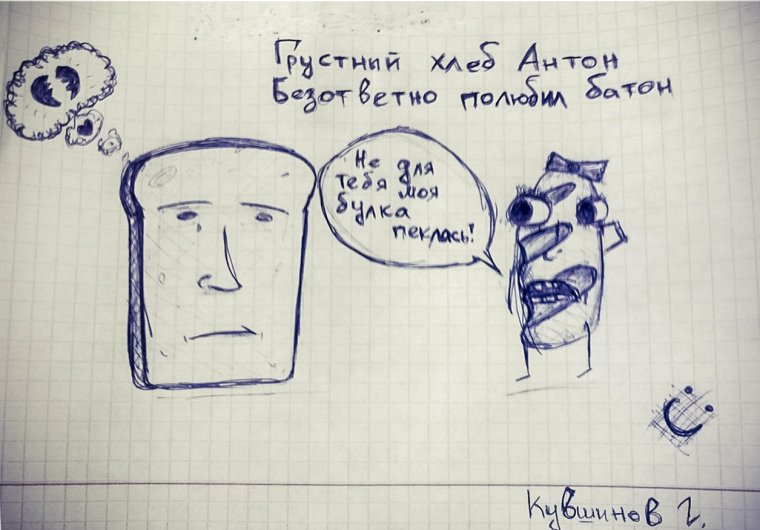 Грустный хлеб Антон
Безответно полюбил батон
Не для
тебя моя
булка
пеклась!
Кувшинов Г.